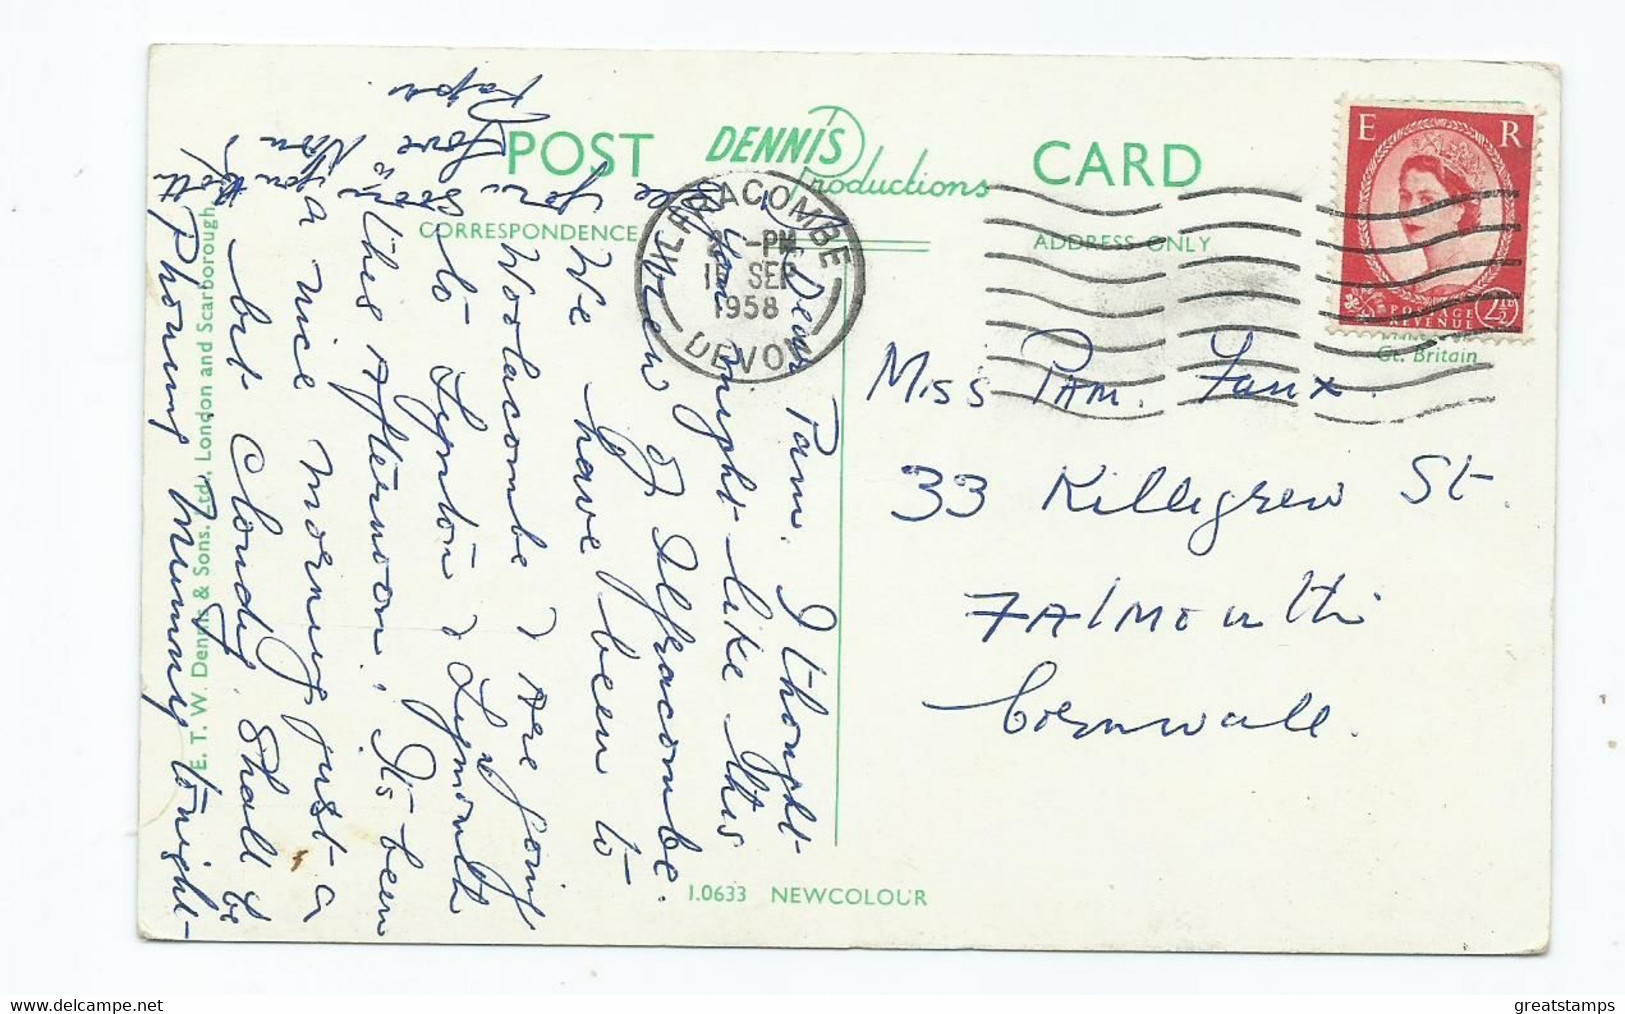 POST
DENNIS
Productions
CARD
CORRESPONDENCE
ADDRESS ONLY
ILFRACOMBE
-PM
SEP
1958
DEVON
E R
POSTAGE
REVENUE
2½D
Gt. Britain
Dear Pam. I thought
you might like this
view of Ilfracombe.
We have been to
Woolacombe & are going
to Lynton & Lynmouth
this Afternoon. It's been
a nice morning just a
bit Cloudy. Shall be
Phoning Mummy tonight-
see you soon
Love
Papa
Miss Pam. Faux.
33 Killigrew St.
FAlMOuth
Cornwall.
E. T. W. Dennis & Sons. Ltd., London and Scarborough
1.0633 NEWCOLOUR
greatstamps